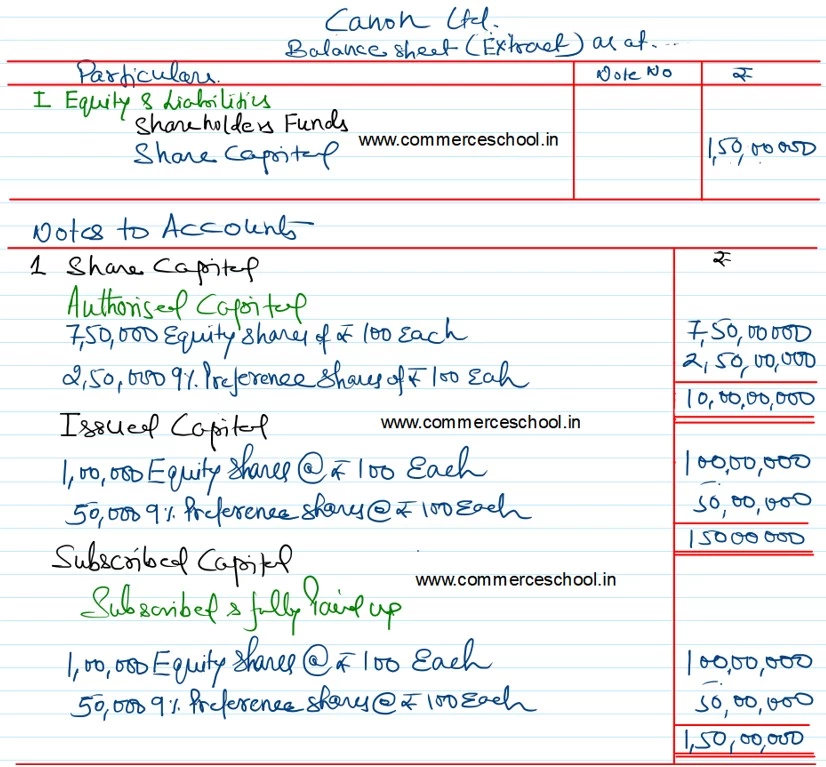 Canon Ltd.
Balance sheet (Extract) as at....
Particulars. Note No ₹
I Equity & Liabilities
Shareholders Funds
www.commerceschool.in
Share Capital 1,50,00000
Notes to Accounts
1 Share Capital ₹
Authorised Capital
7,50,000 Equity shares of ₹ 100 Each 7,50,00000
2,50,000 9% Preference shares of ₹ 100 Eah 2,50,00,000
10,00,00,000
Issued Capital www.commerceschool.in
1,00,000 Equity shares @ ₹ 100 Each 100,00,000
50,000 9% Preference shares @ ₹ 100 Each 50,00,000
15000000
Subscribed Capital
www.commerceschool.in
Subscribed & fully Paid up
1,00,000 Equity shares @ ₹ 100 Each 100,00,000
50,000 9% Preference shares @ ₹ 100 Each 50,00,000
1,50,00,000